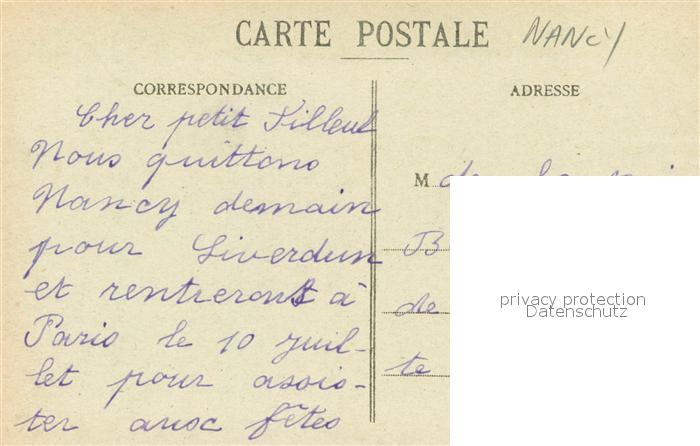 CARTE POSTALE NANCY
CORRESPONDANCE
ADRESSE
Cher petit Filleul
Nous quittons
Nancy demain
pour Liverdun
et rentrerons à
Paris le 10 juil-
let pour assis-
ter aux fêtes
M
B
de
te
privacy protection
Datenschutz